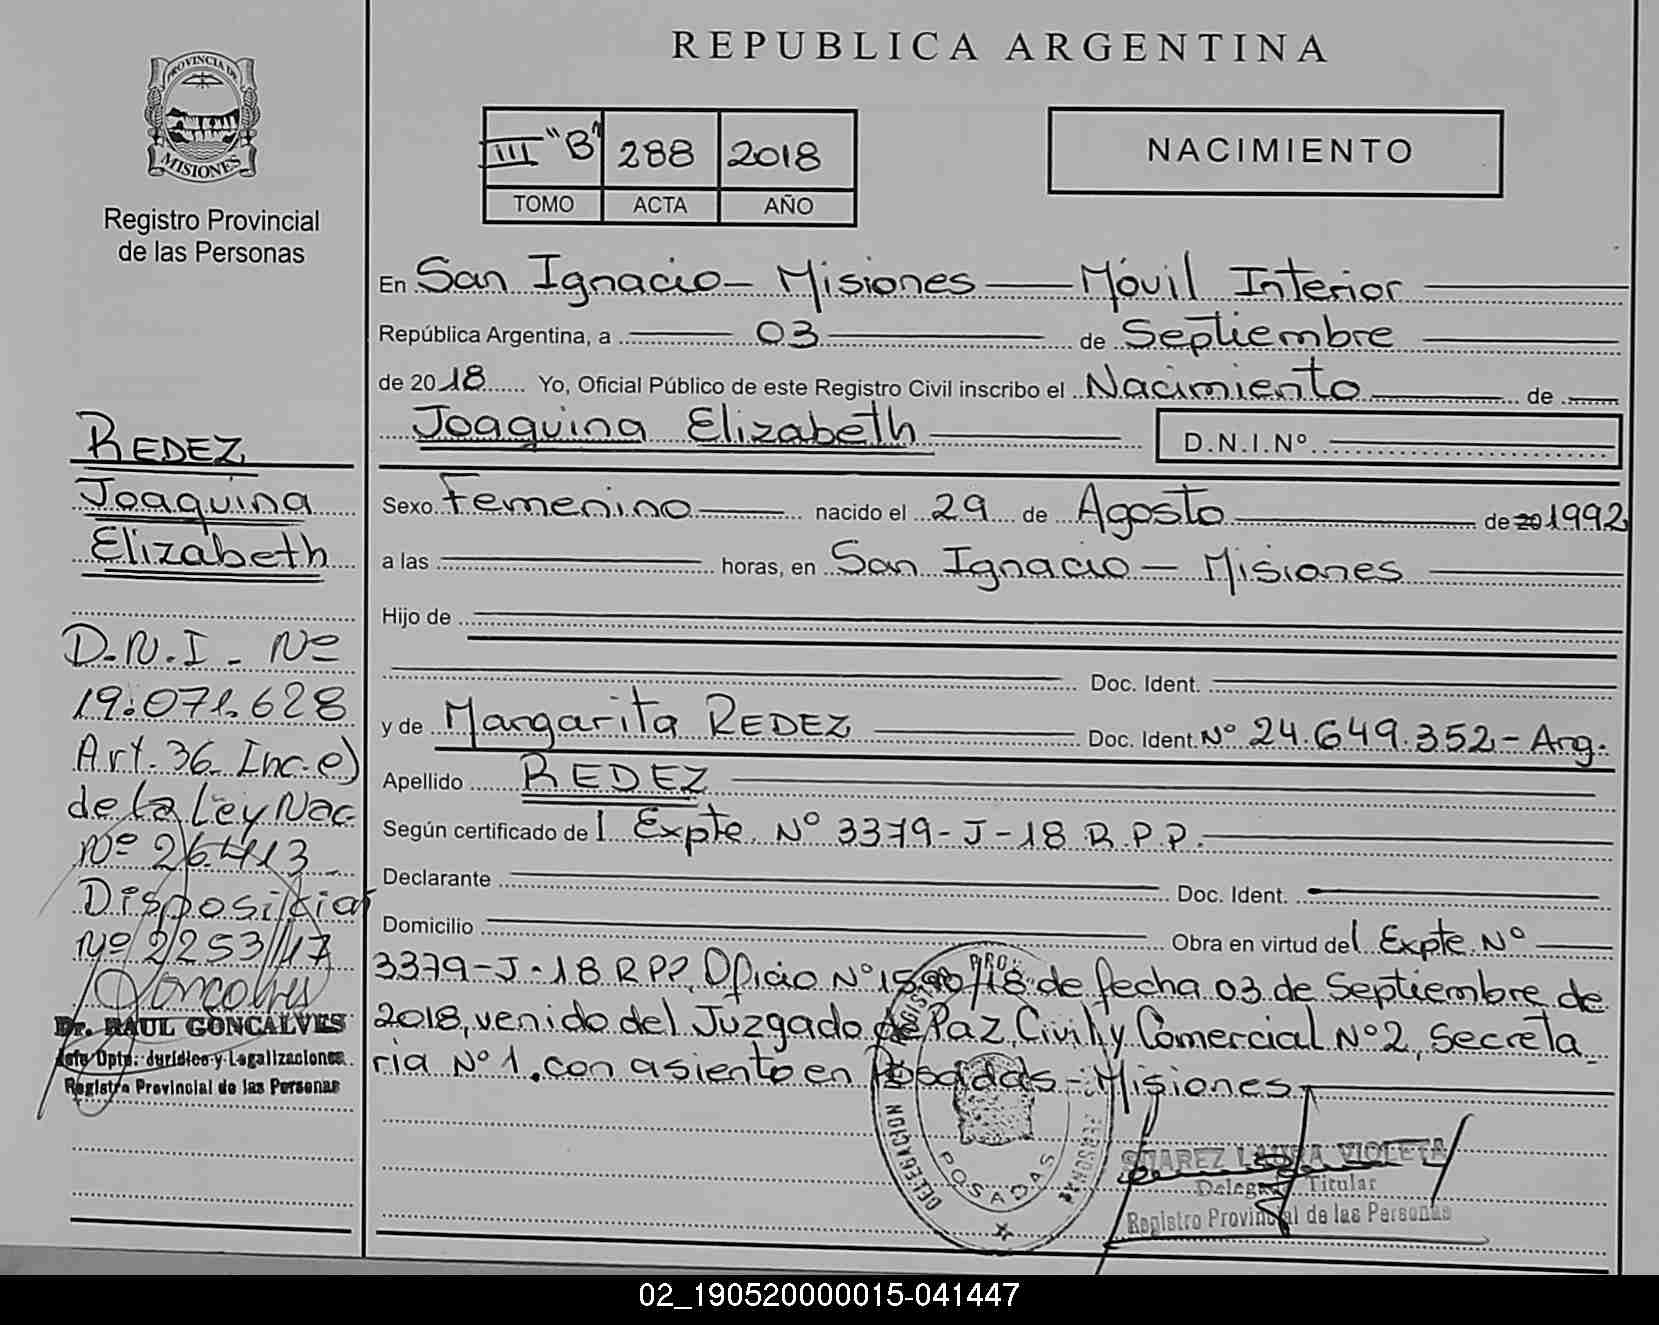 REPUBLICA ARGENTINA
PROVINCIA DE
MISIONES
Registro Provincial
de las Personas
III "B" 288 2018
TOMO ACTA AÑO
NACIMIENTO
En San Ignacio - Misiones — Móvil Interior
República Argentina, a 03 de Septiembre
de 2018 Yo, Oficial Público de este Registro Civil inscribo el Nacimiento de
Joaquina Elizabeth D.N.I.Nº
Sexo Femenino nacido el 29 de Agosto de 20 1992
a las horas, en San Ignacio - Misiones
Hijo de
Doc. Ident.
y de Margarita REDEZ Doc. Ident. Nº 24.649.352 - Arg.
Apellido REDEZ
Según certificado de l Expte. Nº 3379-J-18 R.P.P.
Declarante Doc. Ident.
Domicilio Obra en virtud del Expte. Nº
3379-J-18 R.P.P. Oficio Nº /18 de fecha 03 de Septiembre de
2018, venido del Juzgado de Paz, Civil y Comercial Nº 2, Secreta
ria Nº 1, con asiento en Posadas - Misiones
REDEZ
Joaquina
Elizabeth
D.N.I - Nº
19.071.628
Art. 36 Inc. e)
de la Ley Nac.
Nº 26.413
Disposición
Nº 2253/17
Dr. RAUL GONCALVES
Jefe Dpto. Jurídico y Legalizaciones
Registro Provincial de las Personas
DELEGACION
POSADAS
SUAREZ LAURA VIOLETA
Delegada Titular
Registro Provincial de las Personas
02_190520000015-041447